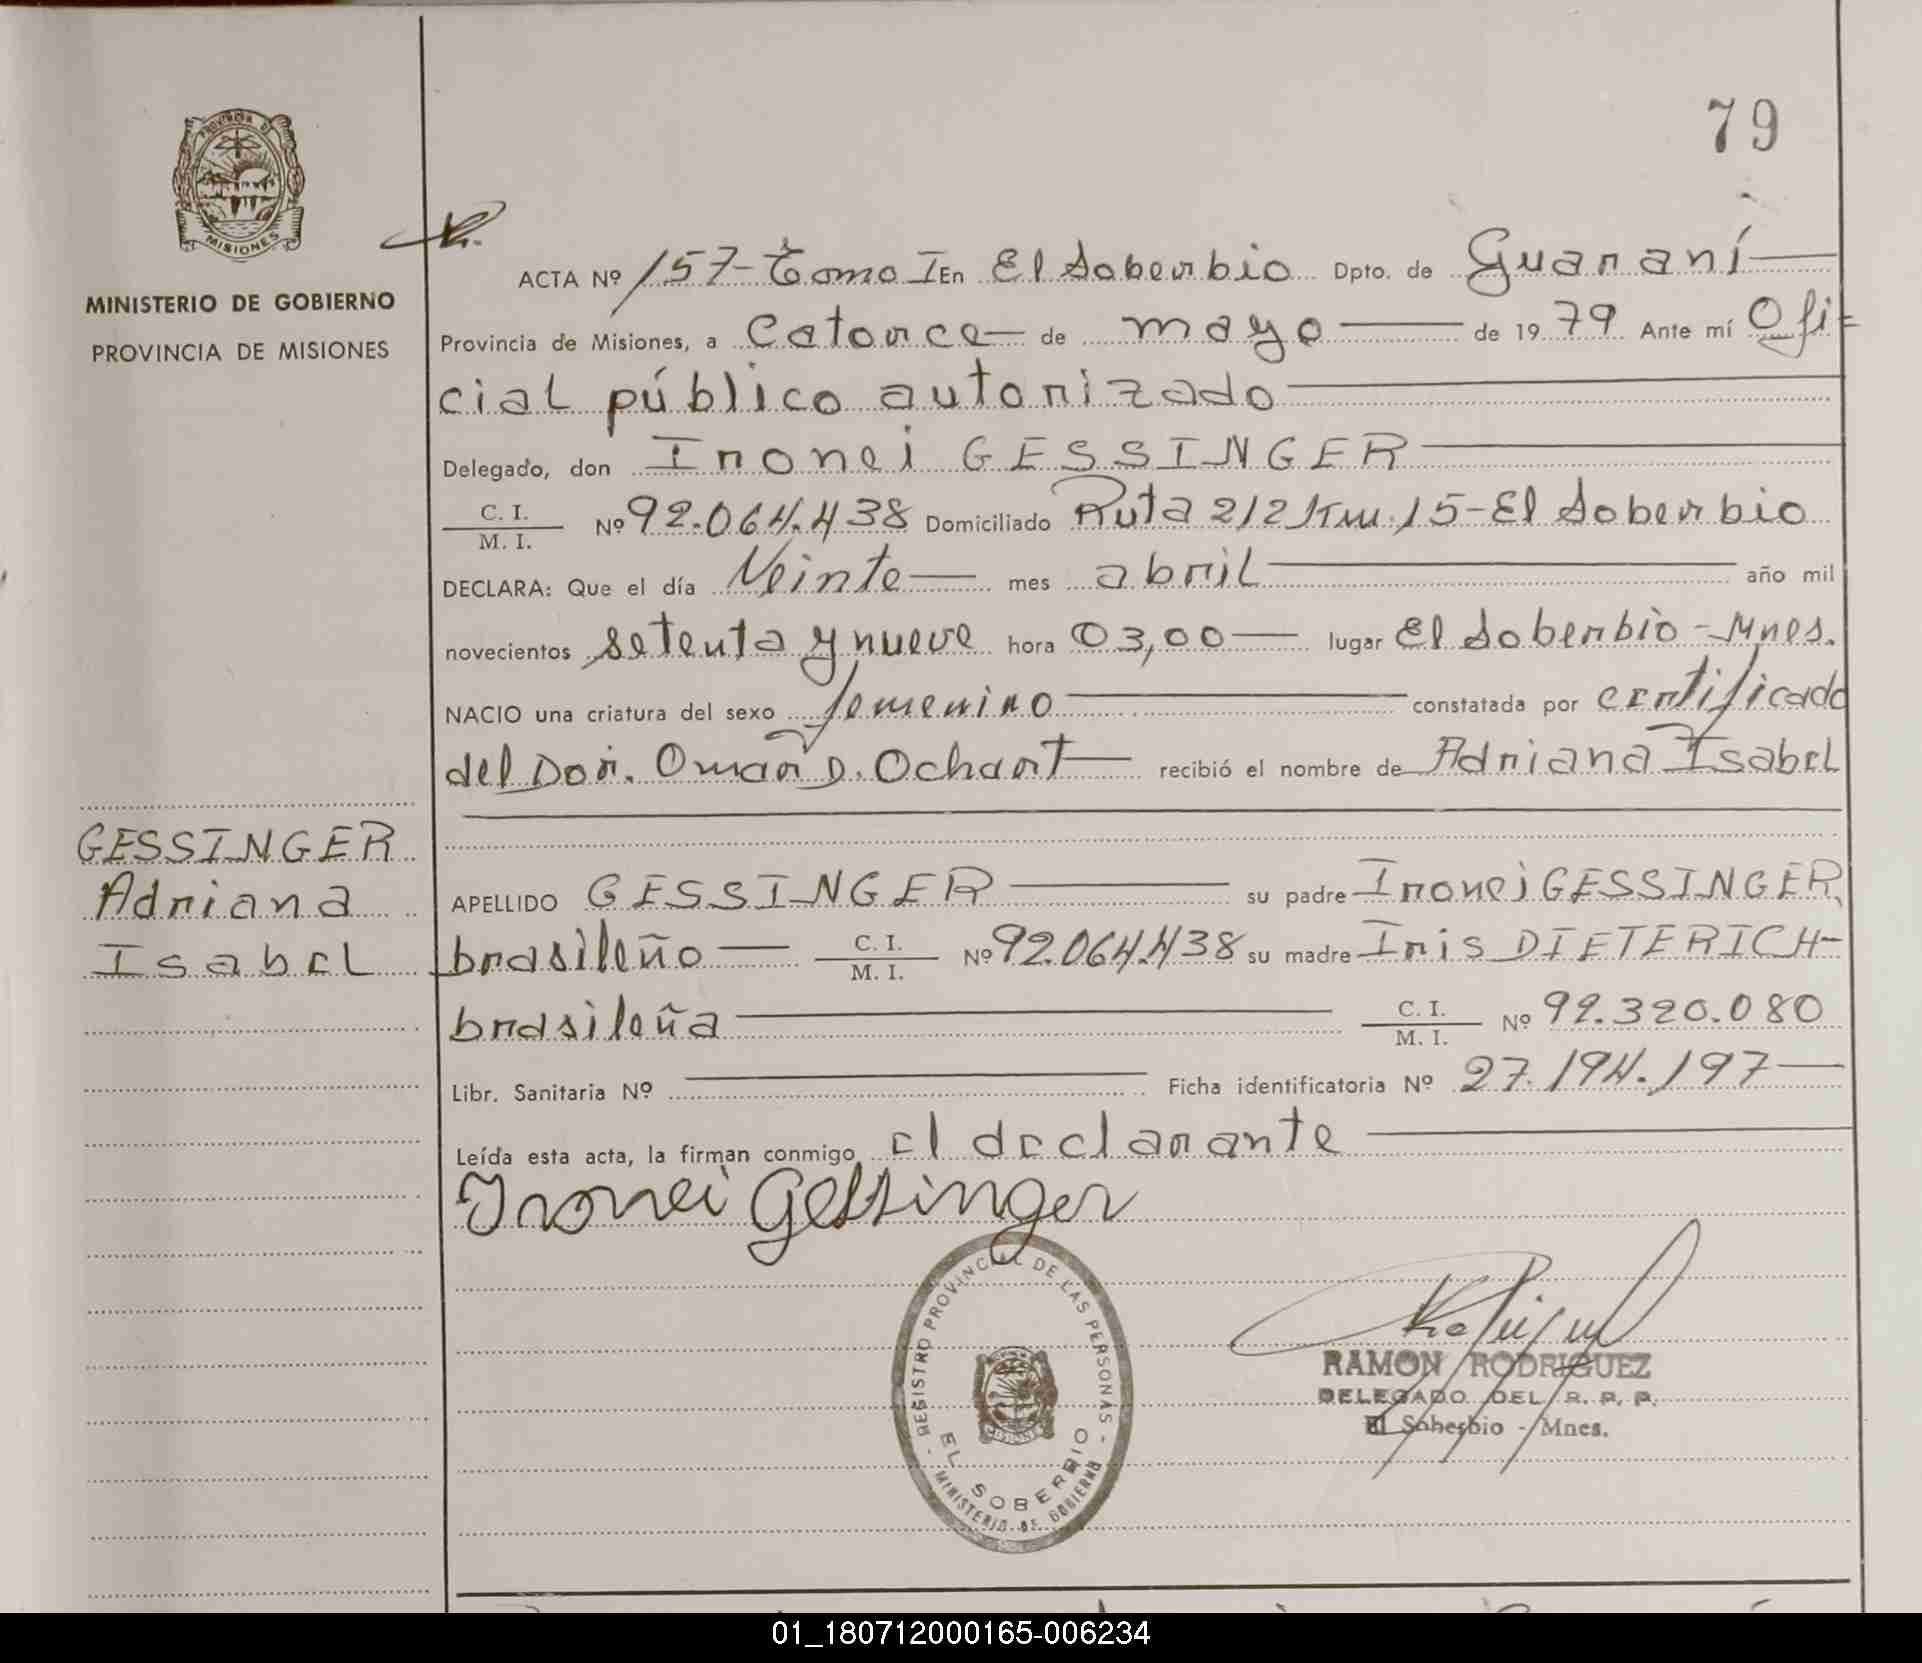 79
PROVINCIA DE
MISIONES
MINISTERIO DE GOBIERNO
PROVINCIA DE MISIONES
ACTA Nº 157-Tomo I En El Soberbio Dpto. de Guaraní
Provincia de Misiones, a Catorce de mayo de 1979 Ante mí Ofi-
cial público autorizado
Delegado, don Ironei GESSINGER
C. I.
M. I. Nº 92.064.438 Domiciliado Ruta 212 Km.15-El Soberbio
DECLARA: Que el día Veinte mes abril año mil
novecientos setenta y nueve hora 03,00 lugar El Soberbio-Mnes.
NACIO una criatura del sexo femenino constatada por certificado
del Dor. Omar D. Ochart recibió el nombre de Adriana Isabel
GESSINGER
Adriana
Isabel
APELLIDO GESSINGER su padre Ironei GESSINGER,
brasileño C. I.
M. I. Nº 92.064.438 su madre Iris DIETERICH-
brasileña C. I.
M. I. Nº 92.320.080
Libr. Sanitaria Nº Ficha identificatoria Nº 27.194.197
Leída esta acta, la firman conmigo el declarante
Ironei Gessinger
REGISTRO PROVINCIAL DE LAS PERSONAS
EL SOBERBIO
MINISTERIO DE GOBIERNO
RAMON RODRIGUEZ
DELEGADO DEL R. P. P.
El Soberbio - Mnes.
01_180712000165-006234